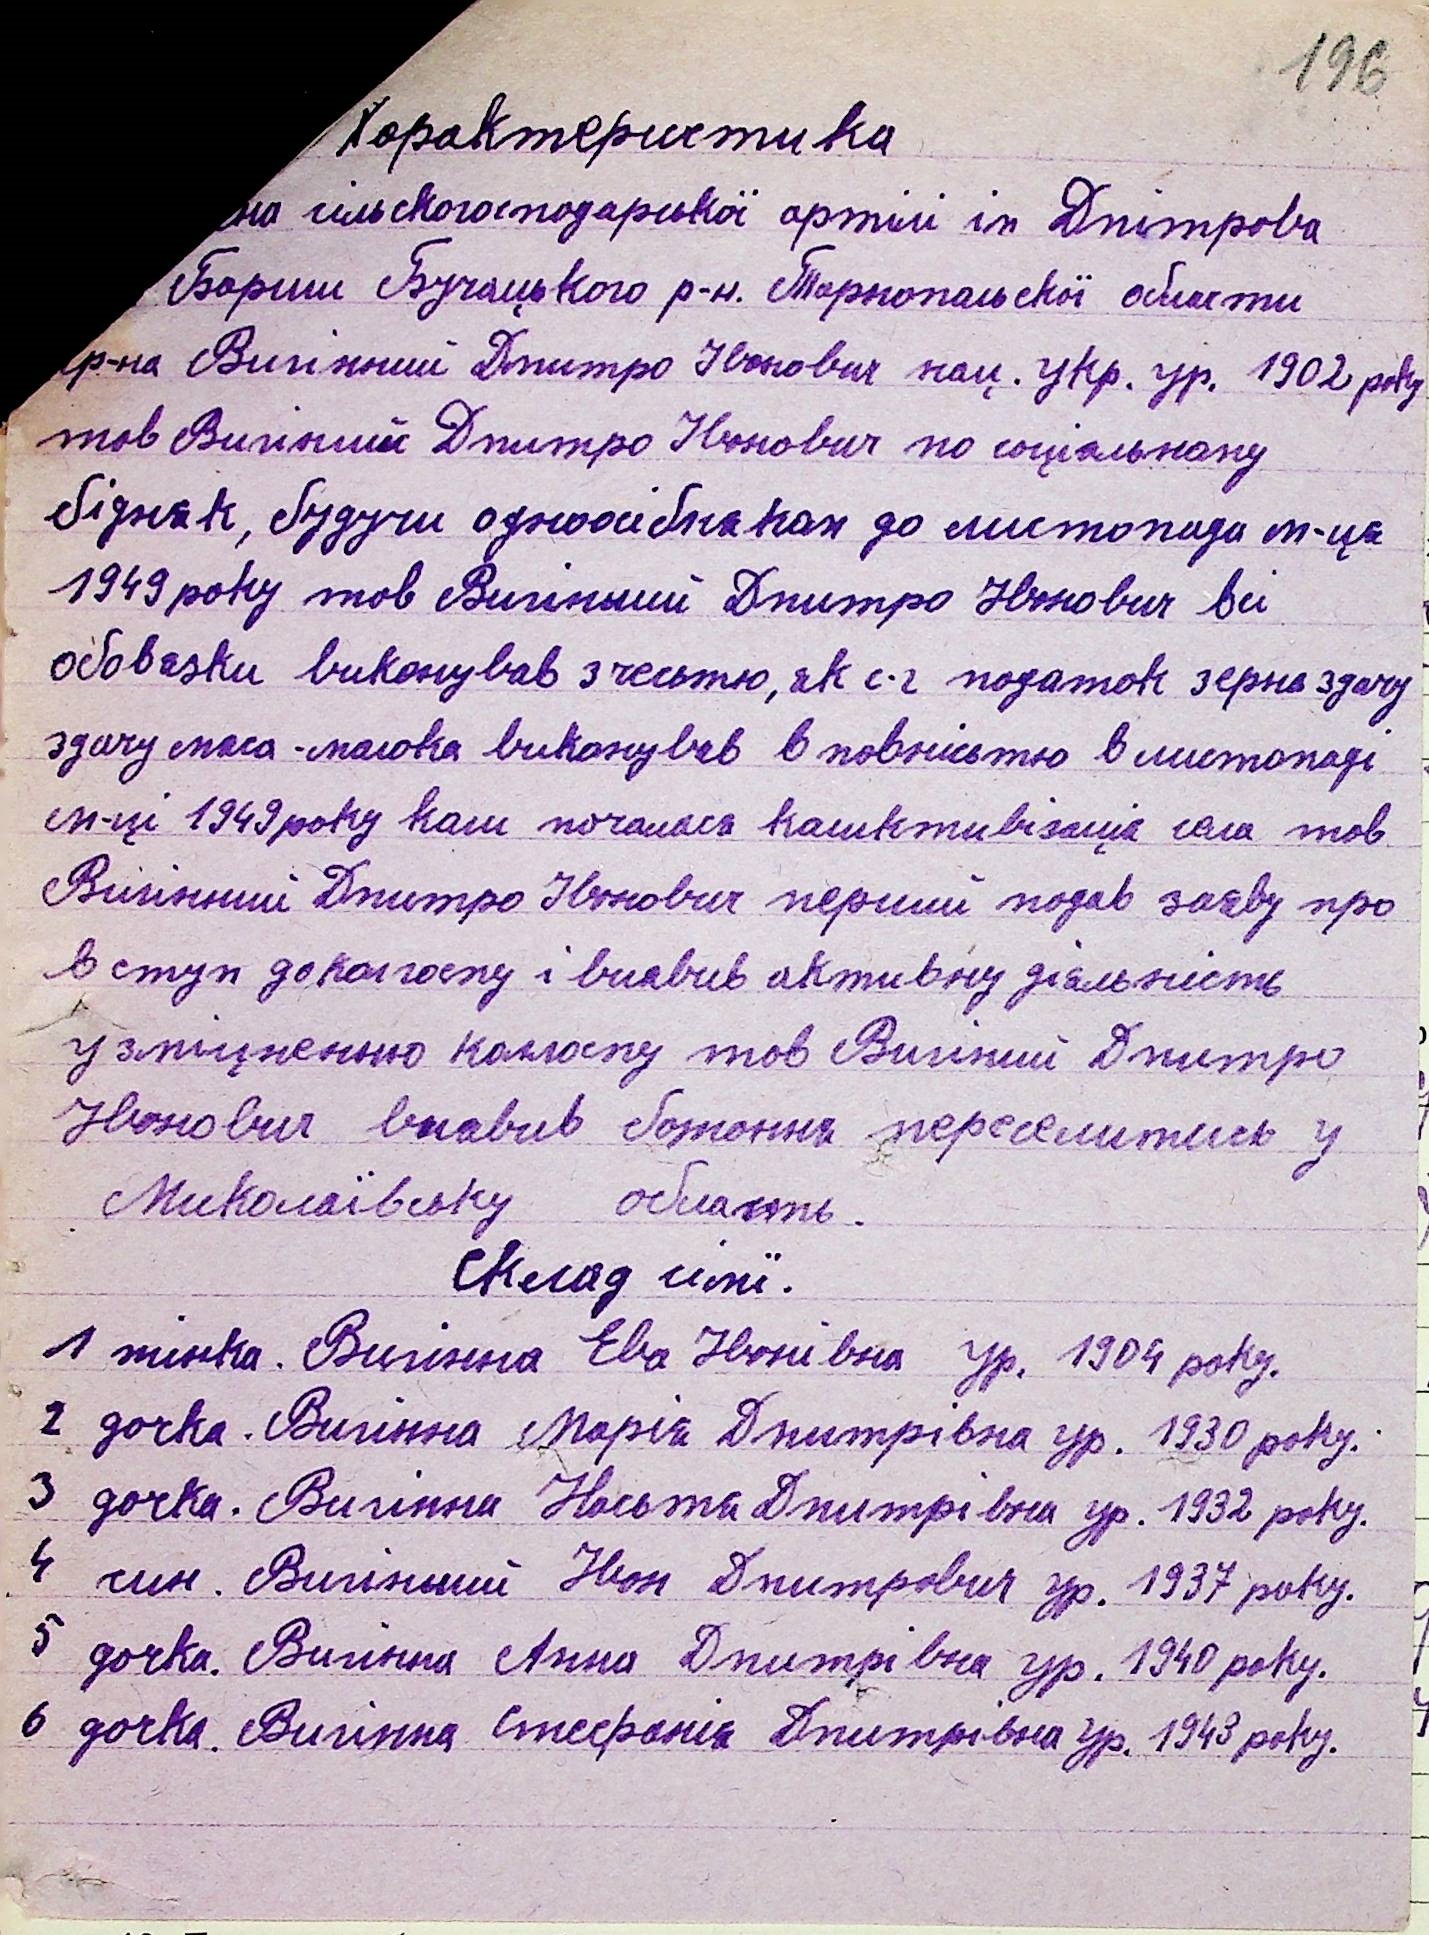 196
Характеристика
на сільскогосподарської артілі ім Дмітрова
Бариш Бучацького р-н. Тарнопальскої области
гр-на Вигінний Дмитро Іванович нац. Укр. ур. 1902 року
тов Вигінний Дмитро Іванович по соціальному
бідняк, будучи одноосібником до листопада м-ця
1949 року тов Вигінний Дмитро Іванович всі
обовязки виконував з честью, як с-г податок зерна здачу
здачу мяса-малока виконував в повністью в листопаді
м-ці 1949 року коли почалася колективізація села тов
Вигінний Дмитро Іванович перший подав заяву про
вступ до колгоспу і виявив активну діяльність
у зміцненню колгоспу тов Вигіний Дмитро
Іванович виявив бажання переселитись у
Миколаївську область.
Склад сімї.
1 жінка. Вигінна Ева Іванівна ур. 1904 року.
2 дочка. Вигінна Марія Дмитрівна ур. 1930 року.
3 дочка. Вигінна Насьтя Дмитрівна ур. 1932 року.
4 син. Вигінний Іван Дмитрович ур. 1937 року.
5 дочка. Вигінна Анна Дмитрівна ур. 1940 року.
6 дочка. Вигінна Стефанія Дмитрівна ур. 1943 року.